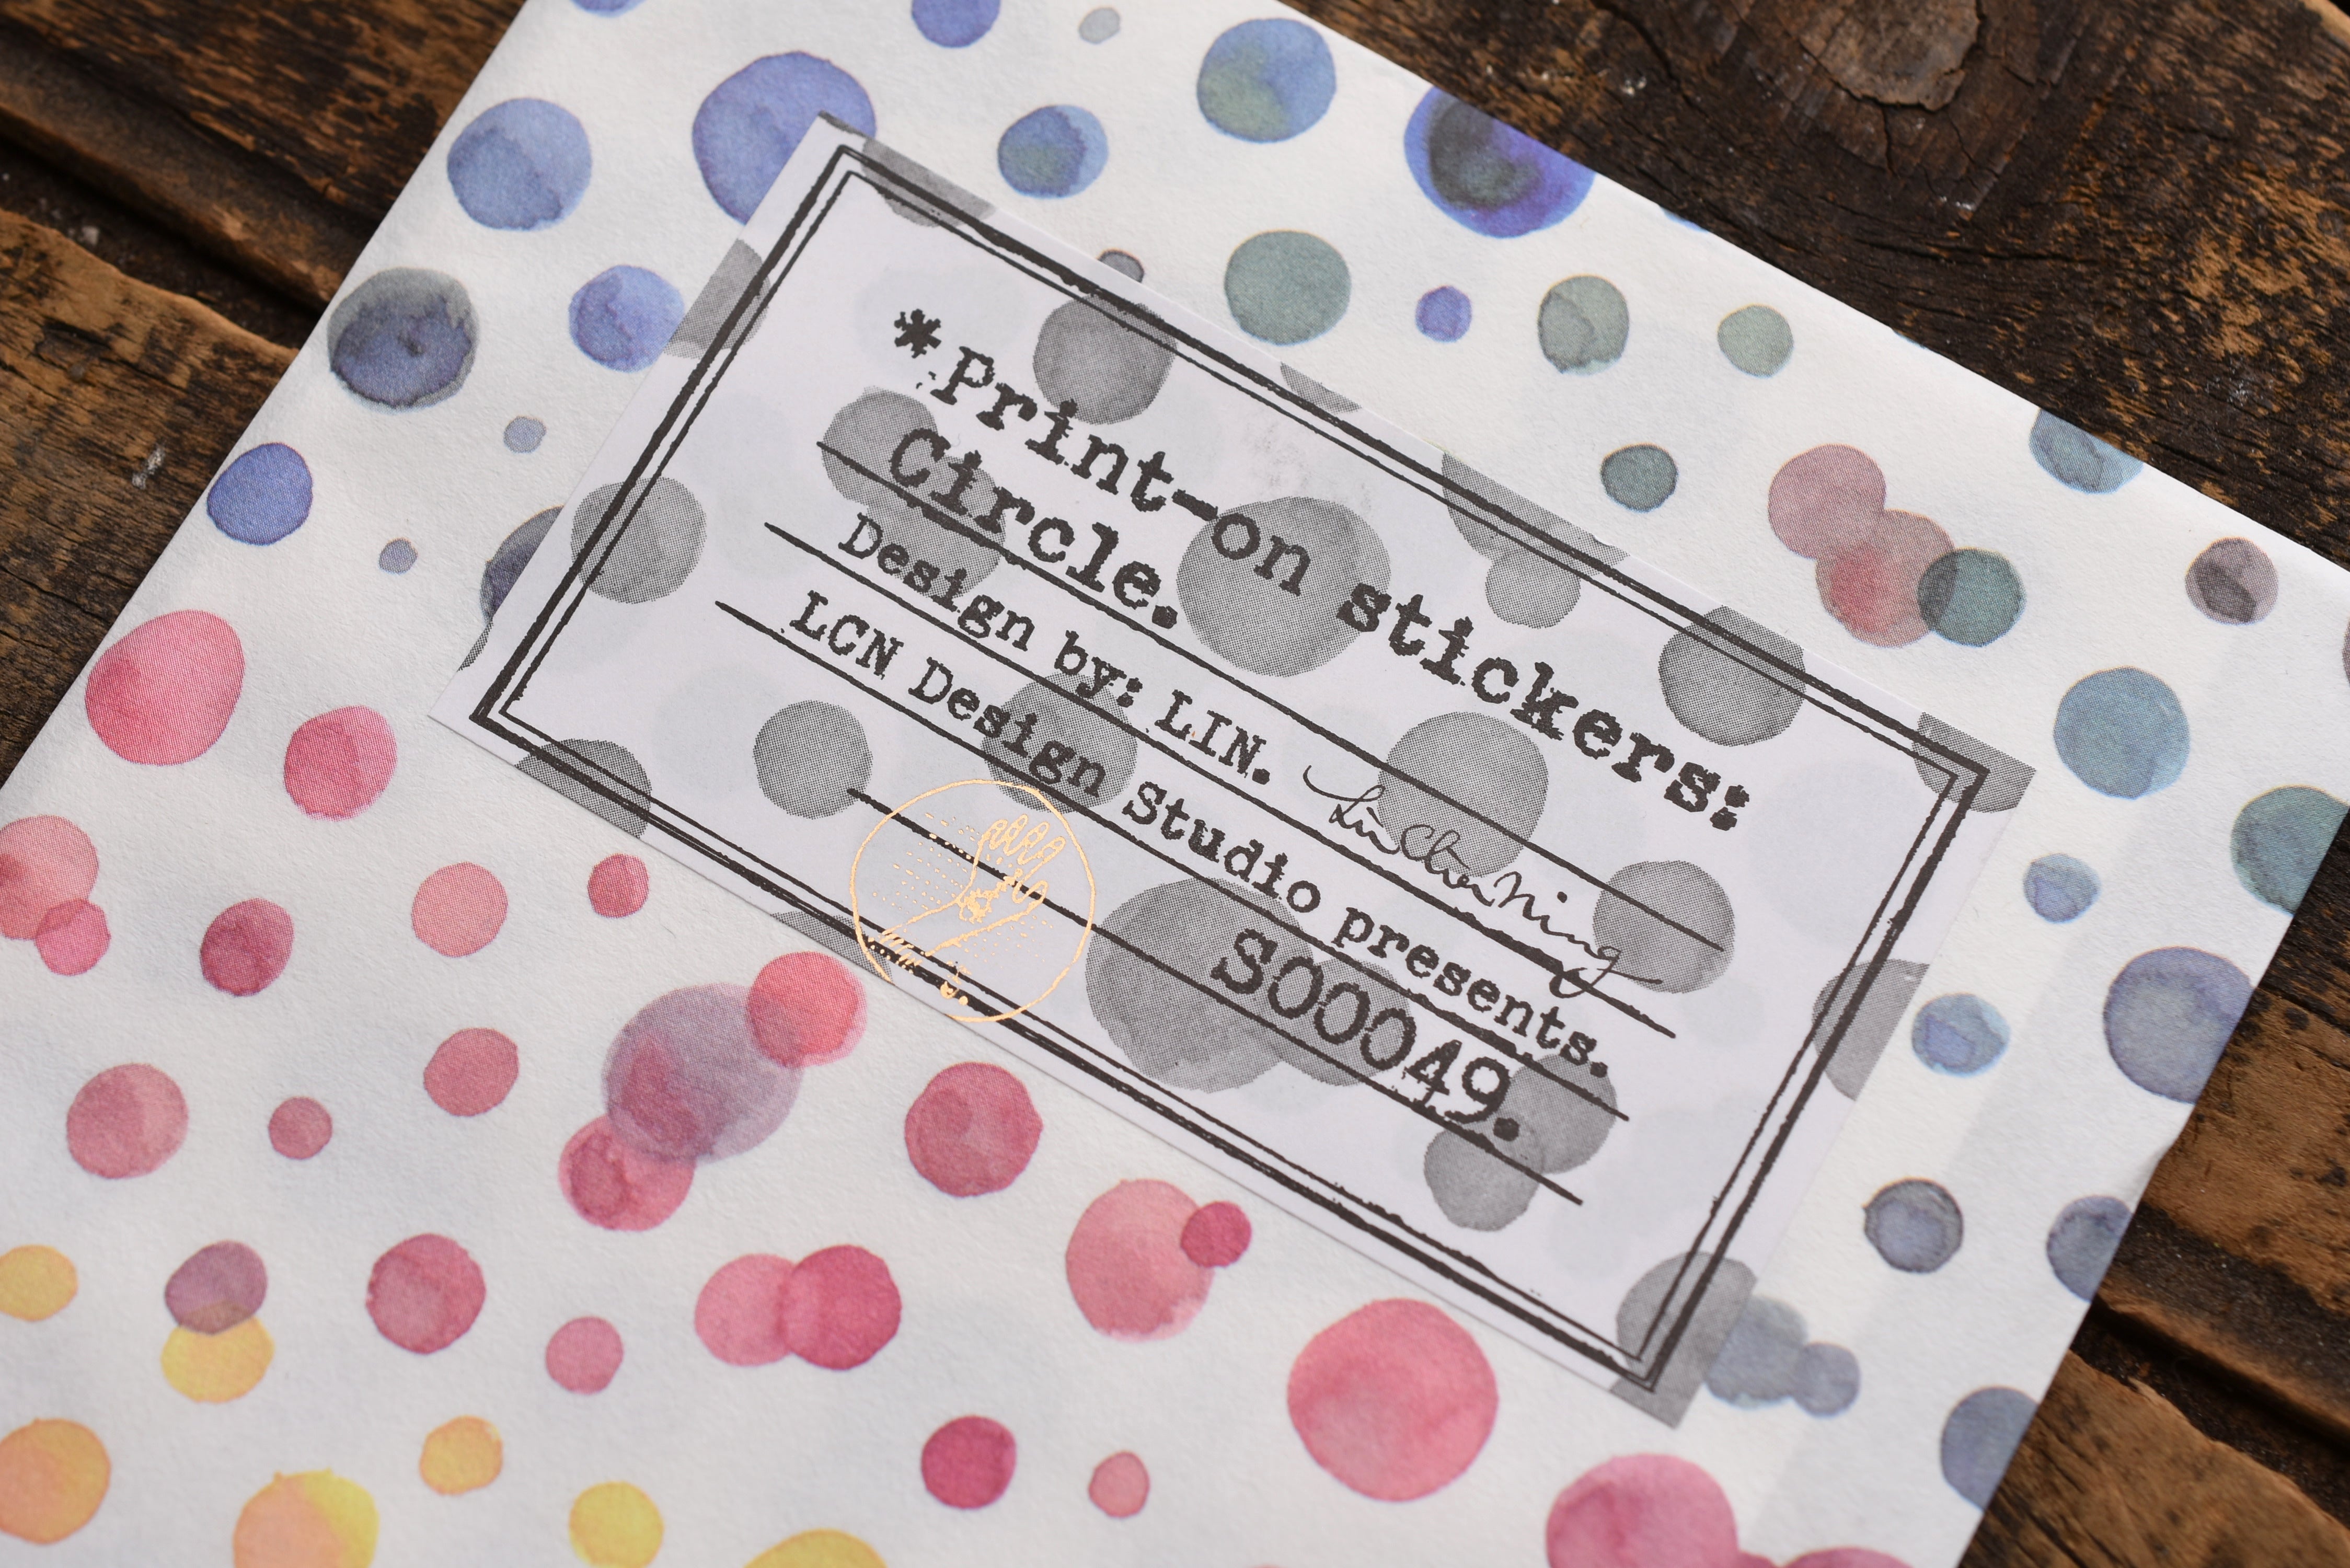 *Print-on stickers:
Circle.
Design by: LIN. Lin Chia Ning
LCN Design Studio presents.
S00049.